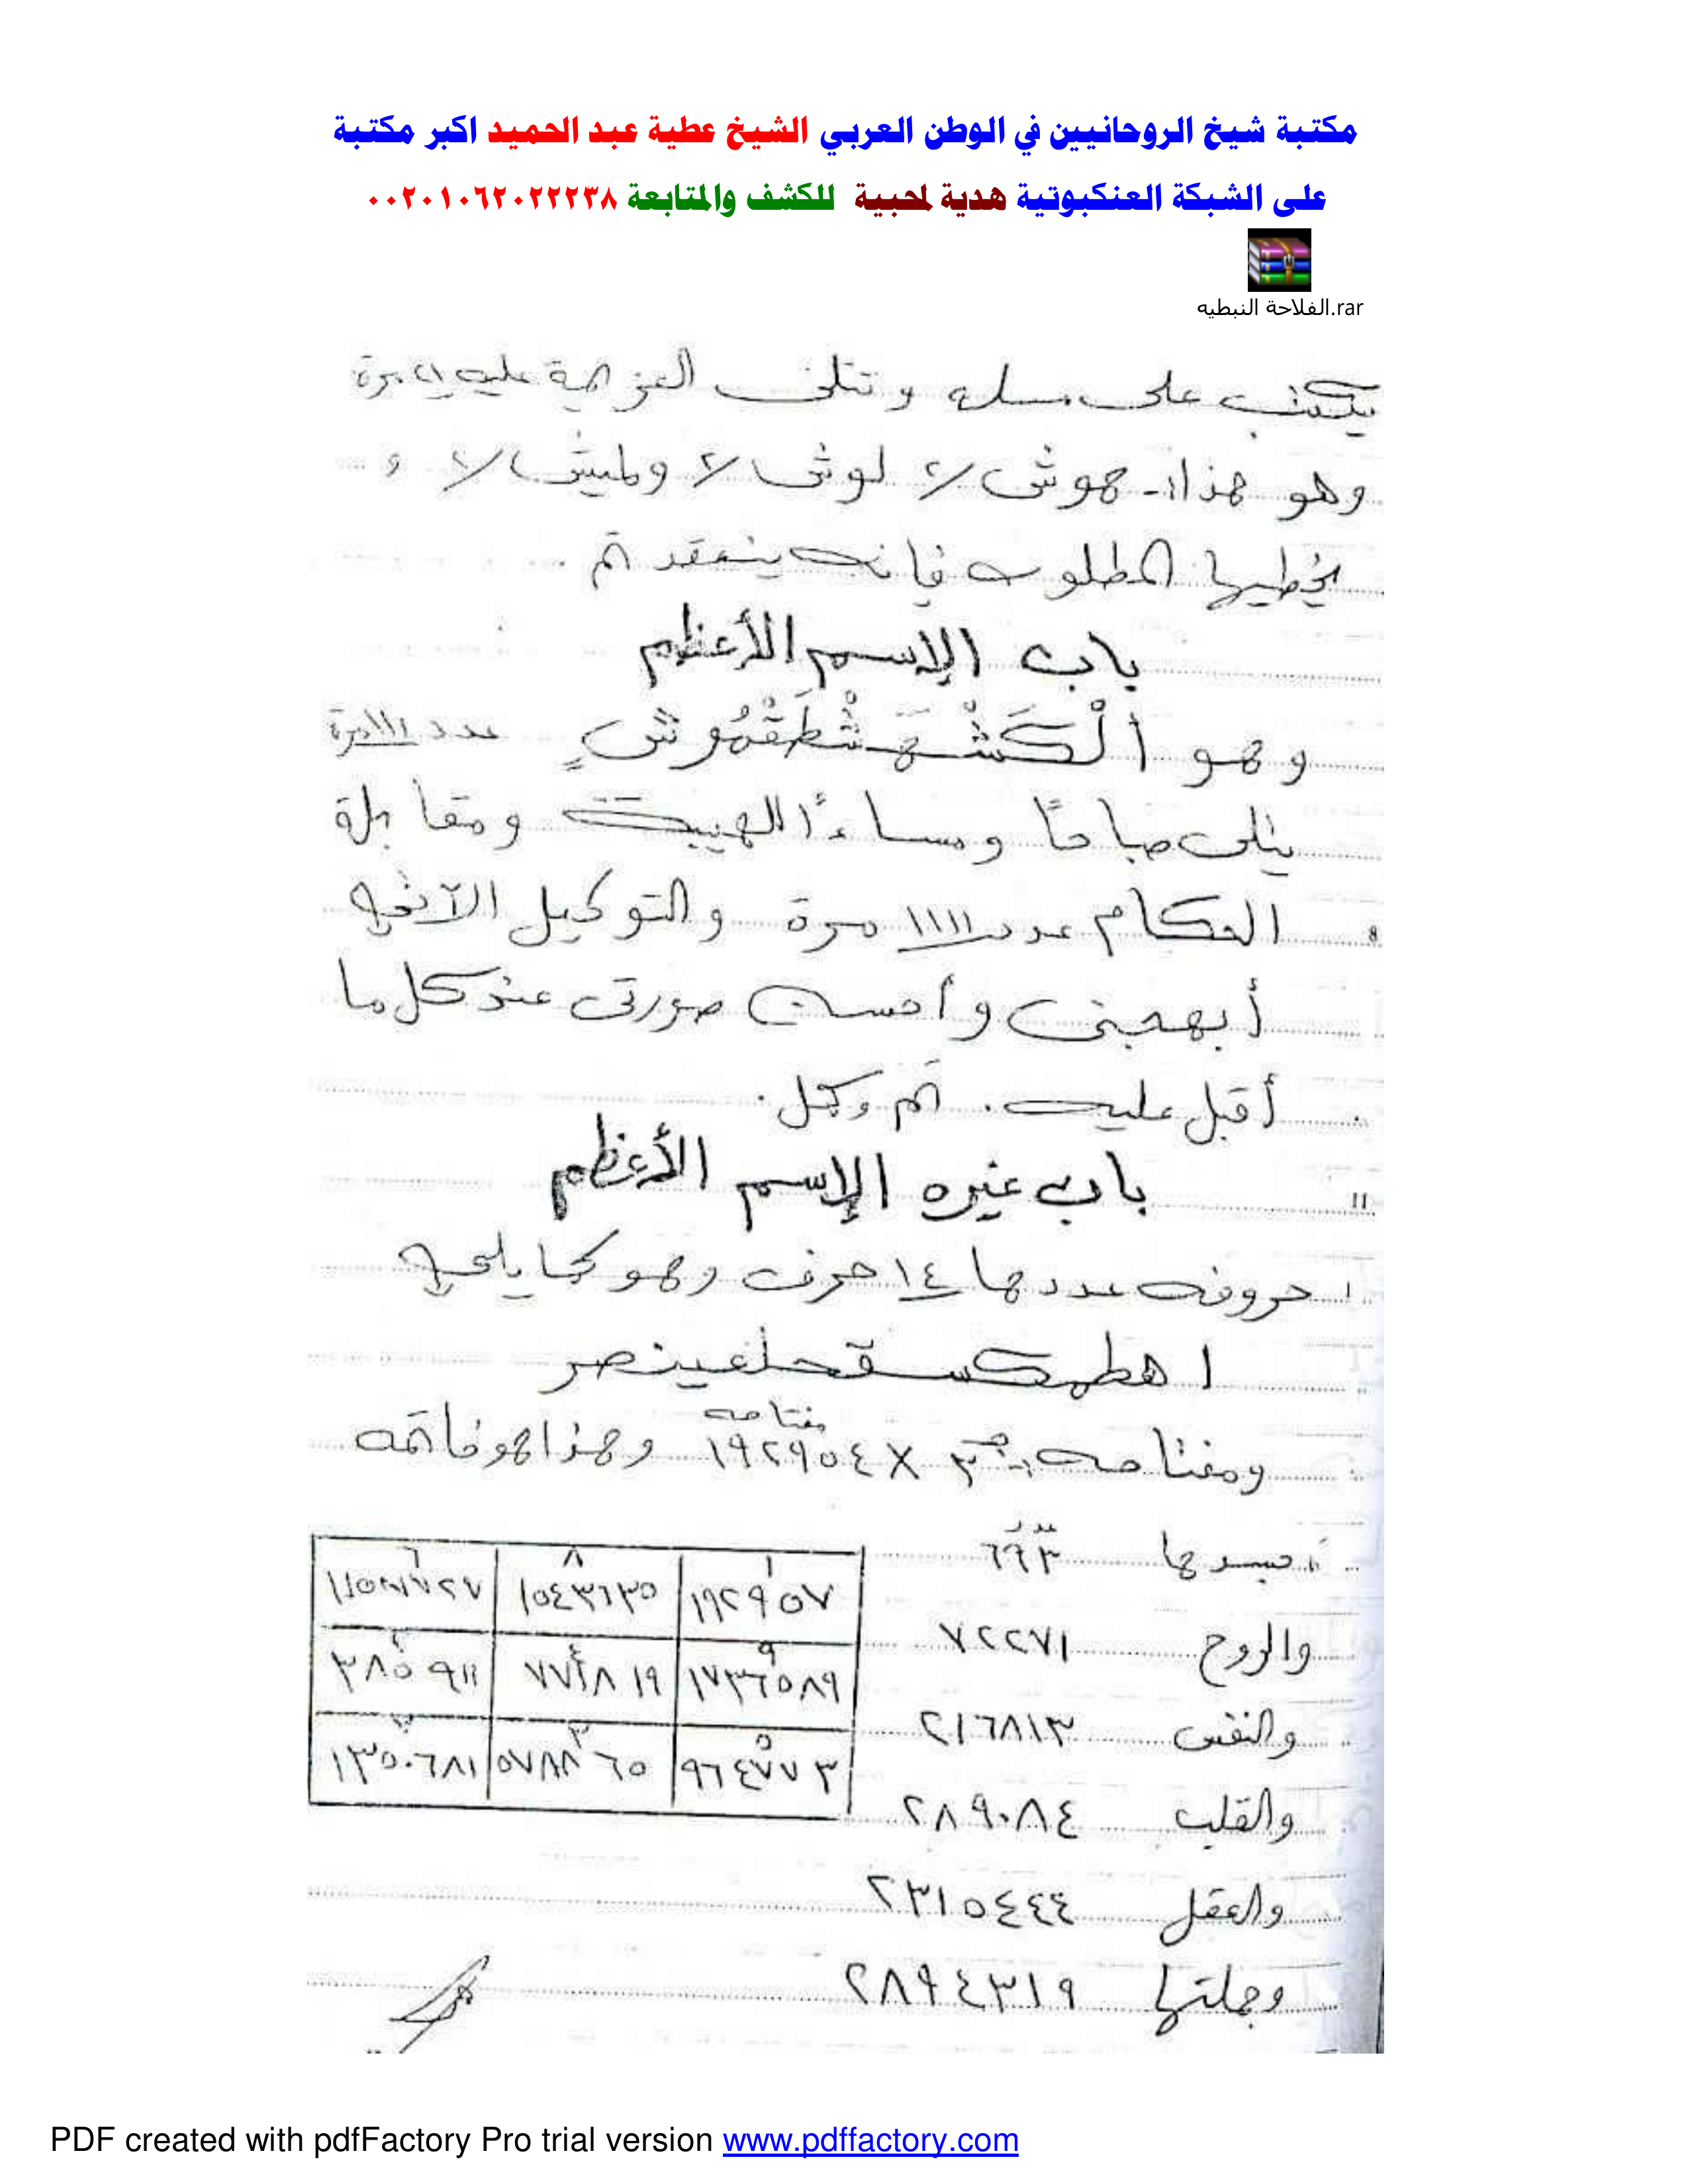 مكتبة شيخ الروحانيين في الوطن العربي الشيخ عطية عبد الحميد اكبر مكتبة
على الشبكة العنكبوتية هدية لمحبية للكشف والمتابعة ٠٠٢٠١٠٦٢٠٢٢٢٣٨
الفلاحة النبطيه.rar
يكتب على مسله و تتلى العزيمة عليه ٢١ مرة
وهو هذا:- هوش ٢/ لوش ٢/ وليش ٢/ و
يخطيها المطلوب فإنه ينعقد تم
باب الإسم الأعظم
وهو أَلْكَشْهَشْطَقْهُوشٍ عدد ١١١ مرة
يتلى صباحًا ومساءًا للهيبة ومقابلة
الحكام عدد ١١١١ مرة والتوكيل الآتى
أبهجنى وأحسن صورتى عند كل ما
أقبل عليه. تم وكمل.
باب غيره الإسم الأعظم
حروفه عددها ١٤ حرف وهو كما يلى
اهطمكسقحلعينصر
مفتاحه
ومفتاحه ٣ × ١٩٢٩٥٤ وهذا هو خاتمه
جسدها ٦٩٣
والروح ٧٢٢٧١
والنفس ٢١٦٨١٣
والقلب ٢٨٩٠٨٤
والعقل ٢٣١٥٤٤٤
وجملتها ٢٨٩٤٣١٩
١ ٨ ٦
١٩٢٩٥٧ ١٥٤٣٦٣٥
١٧٣٦٥٨٩ ٧٧١٨١٩ ٣٨٥٩١١
٩٦٤٧٧٣ ٥٧٨٨٦٥ ١٣٥٠٦٨١
PDF created with pdfFactory Pro trial version www.pdffactory.com